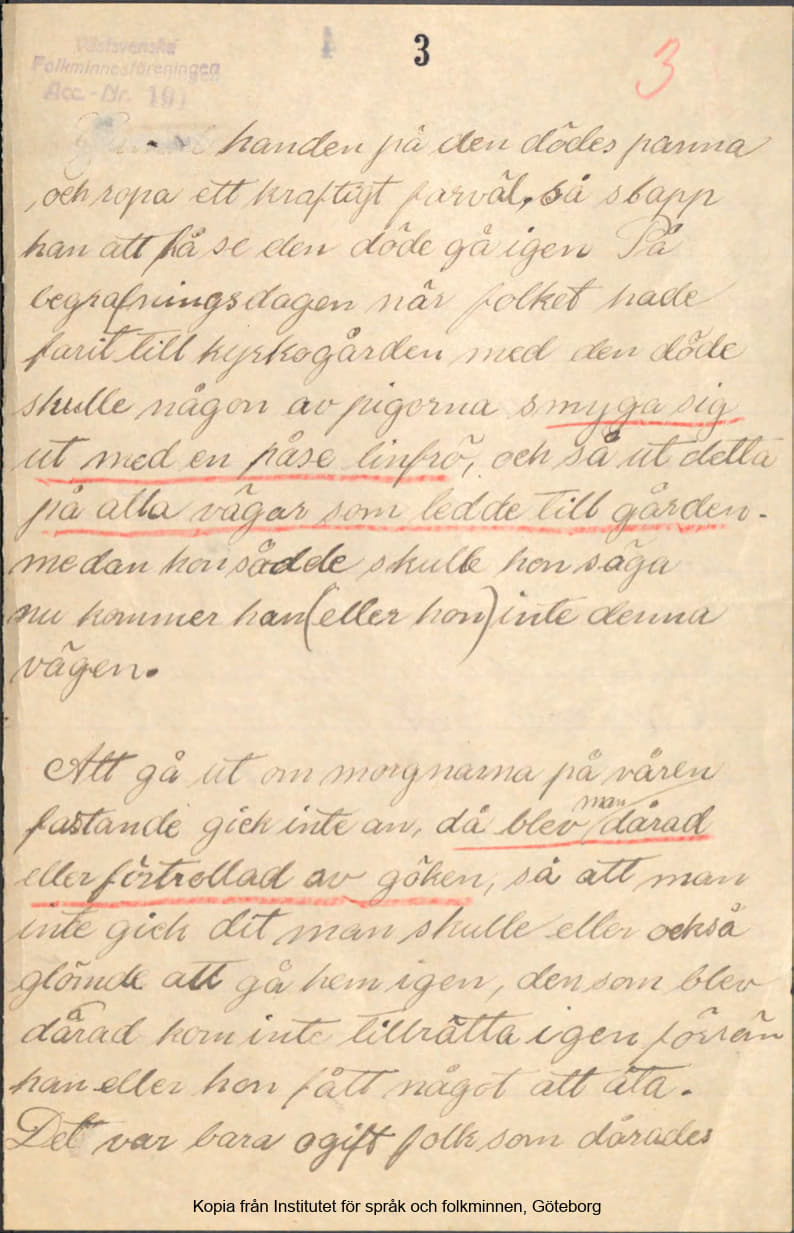 3
3
Västsvenska
Folkminnesföreningen
Acc.-Nr. 191
handen på den dödes panna
och ropa ett kraftigt farväl, så slapp
han att få se den döde gå igen På
begrafningsdagen når folket hade
farit till kyrkogården med den döde
skulle någon av pigorna smyga sig
ut med en påse linfrö, och så ut detta
på alla vägar som ledde till gården.
medan hon sådde skulle hon säga
nu kommer han (eller hon) inte denna
vägen.
Att gå ut om morgnarna på våren
fastande gick inte an, då blev man dårad
eller förtrollad av göken, så att man
inte gick dit man skulle eller också
glömde att gå hem igen, den som blev
dårad kom inte tillrätta igen förrän
han eller hon fått något att äta.
Det var bara ogift folk som dårades
Kopia från Institutet för språk och folkminnen, Göteborg